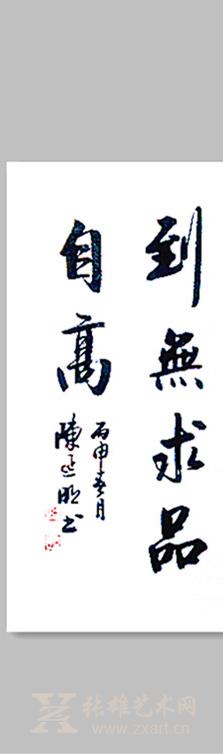 到無求品
自高
丙申春月
陳延明书
张雄艺术网
www.zxart.cn